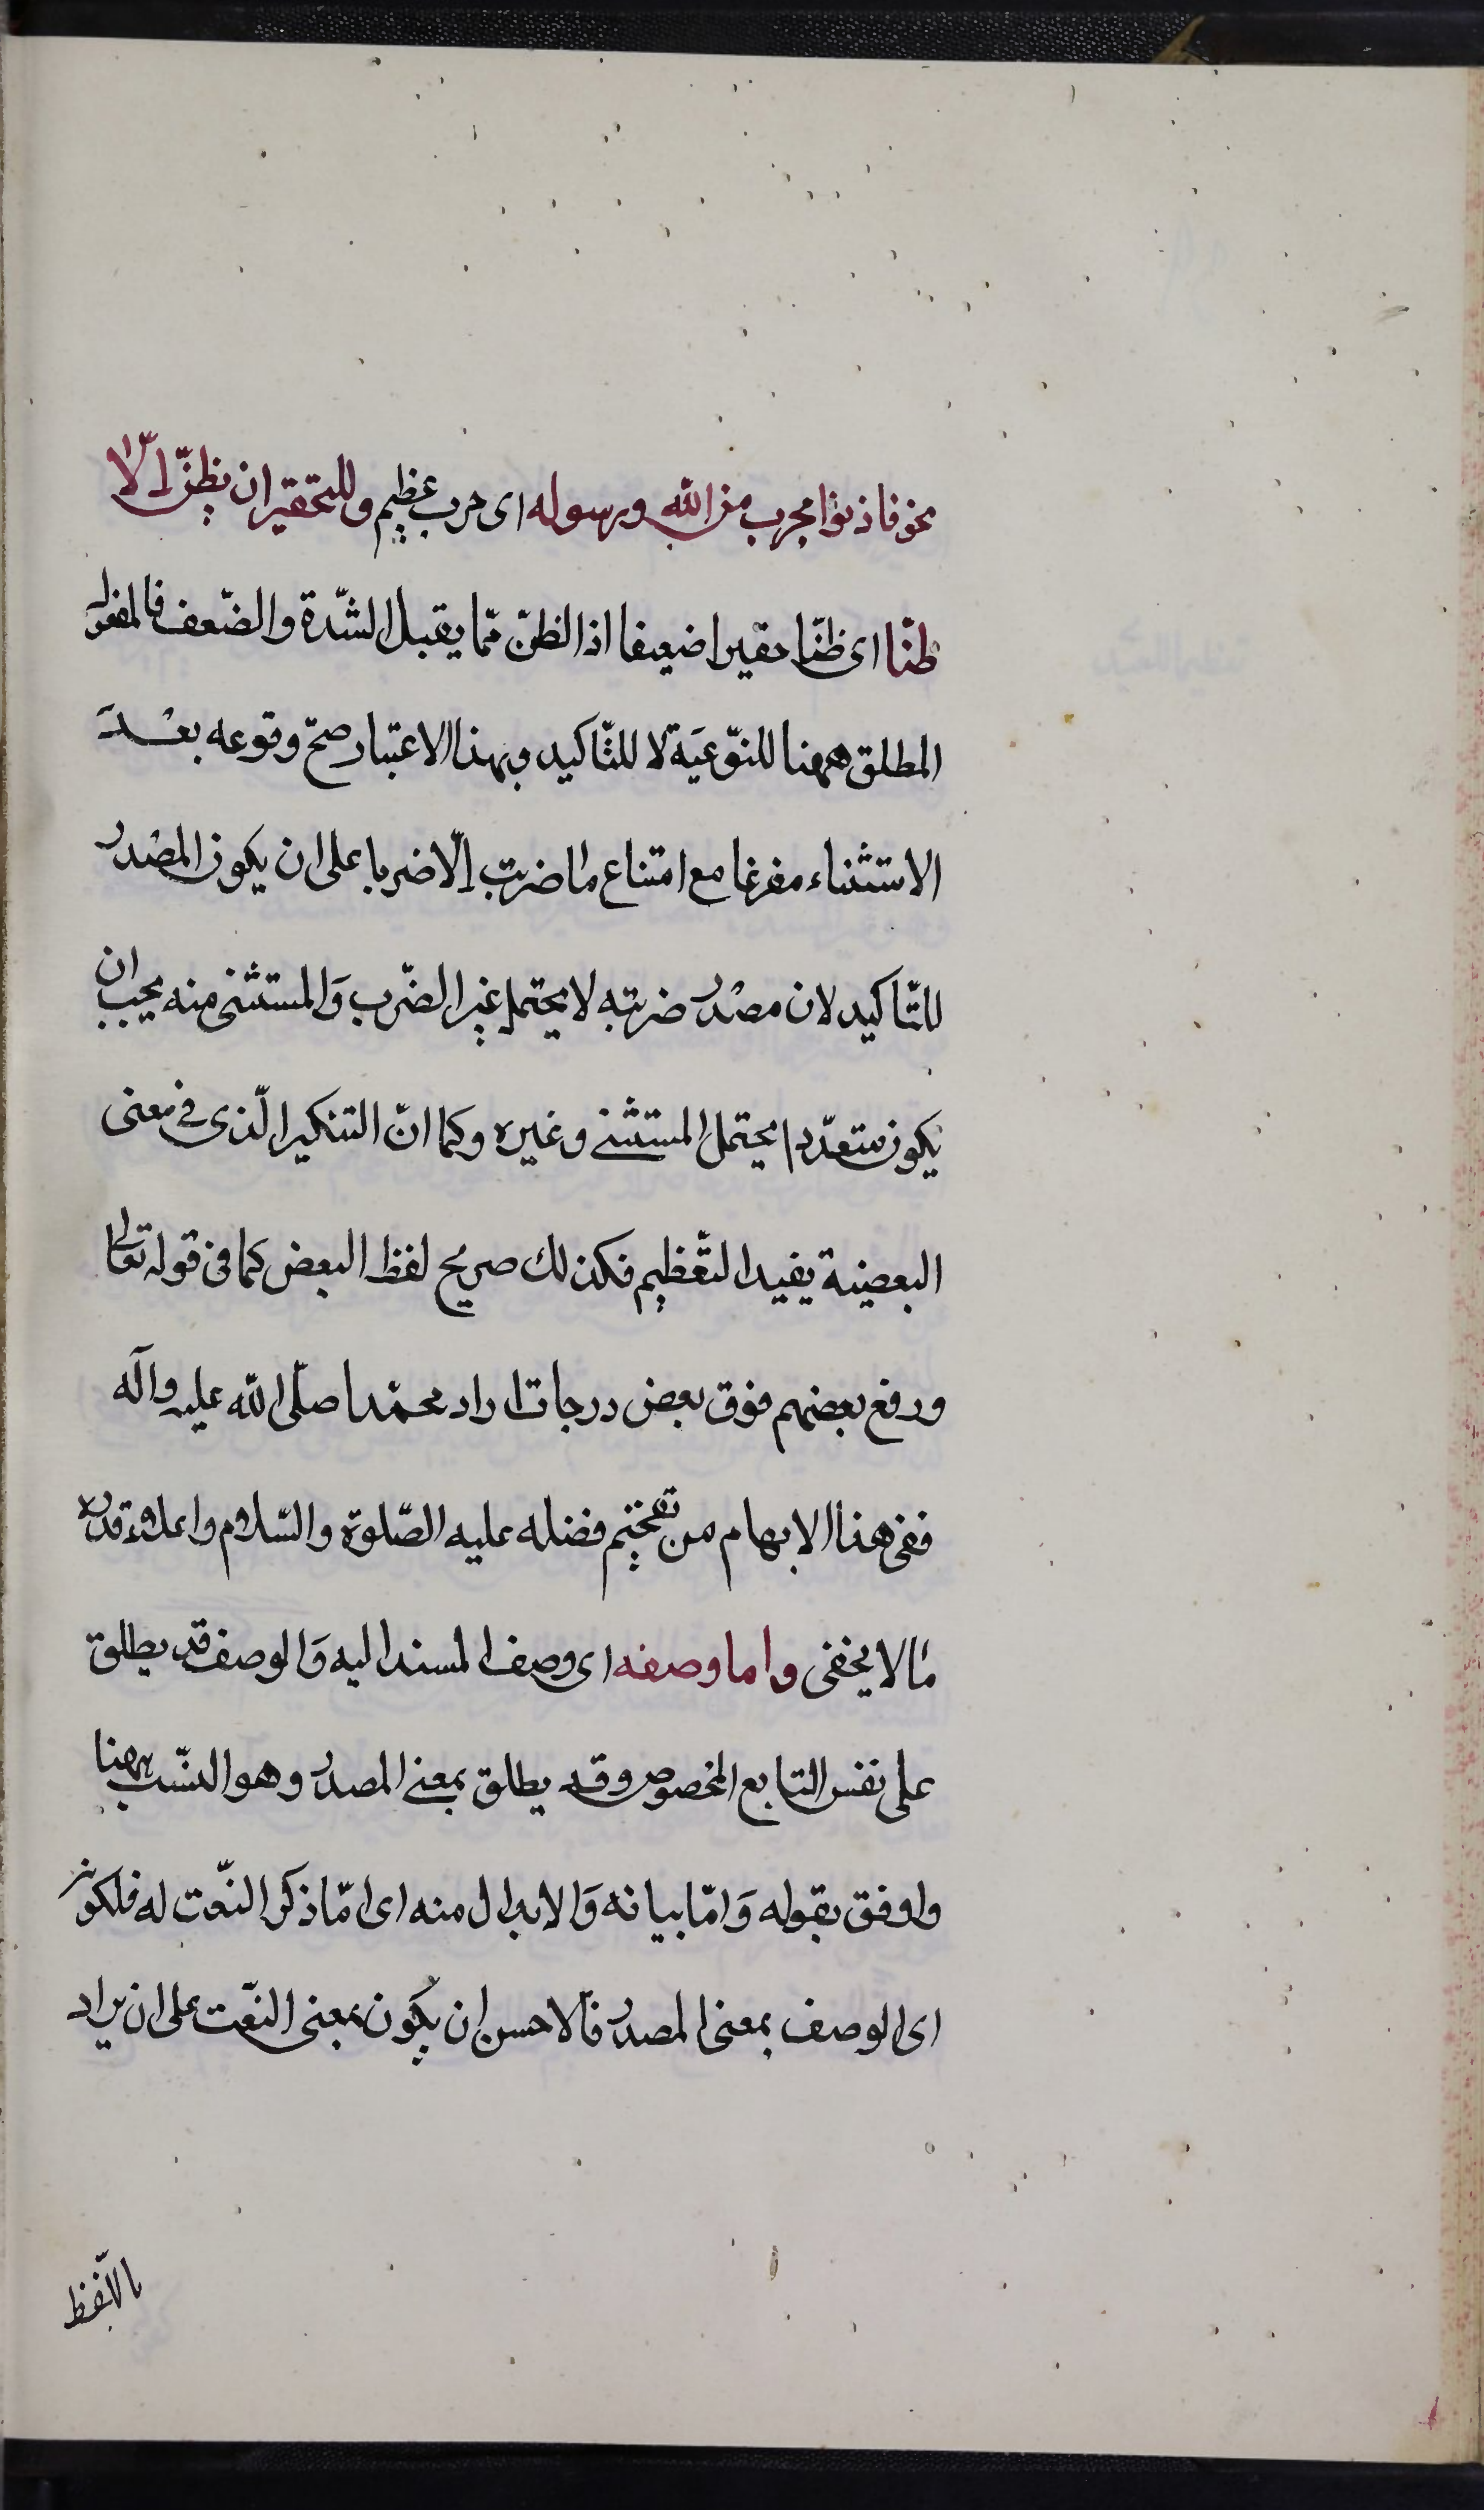 نحو فاذنوا بحرب من الله ورسوله اى حرب عظيم وللتحقير ان نظنّ الّا
ظنّا اى ظنّا حقيرا ضعيفا اذ الظنّ ممّا يقبل الشّدة والضّعف فالمفعول
المطلق ههنا للنّوعيَة لا للتّاكيد وبهذا الاعتبار صحّ وقوعه بعْدَ
الاستثناء مفرغا مع امتناع ما ضربت إلّا ضربا على ان يكون المصْدر
للتّاكيد لان مصْدر ضربته لا يحتمل غير الضّرب وَالمستثنى منه يجب ان
يكون متعدّدا يحتمل المستثنى وغيره وكما انّ التنكير الّذى فى معنى
البعضية يفيد التّعظيم فكذلك صريح لفظ البعض كما فى قوله تعالى
ورفع بعضهم فوق بعض درجات اراد محمّدا صلّى الله عليه وآله
ففى هذا الابهام من تفخيم فضله عليه الصّلوة والسّلام واعلاء قدره
ما لا يخفى واما وصفه اى وصف المسند اليه وَالوصف قد يطلق
على نفس التابع المخصوص وقد يطلق بمعنى المصدر وهو النسّب ههنا
واوفق بقوله وَامّا بيانه وَالابدال منه اى امّا ذكر النّعت له فلكونه
اى الوصف بمعنى المصدر فالاحسن ان يكون بمعنى النّعت على ان يراد
باللّفظ